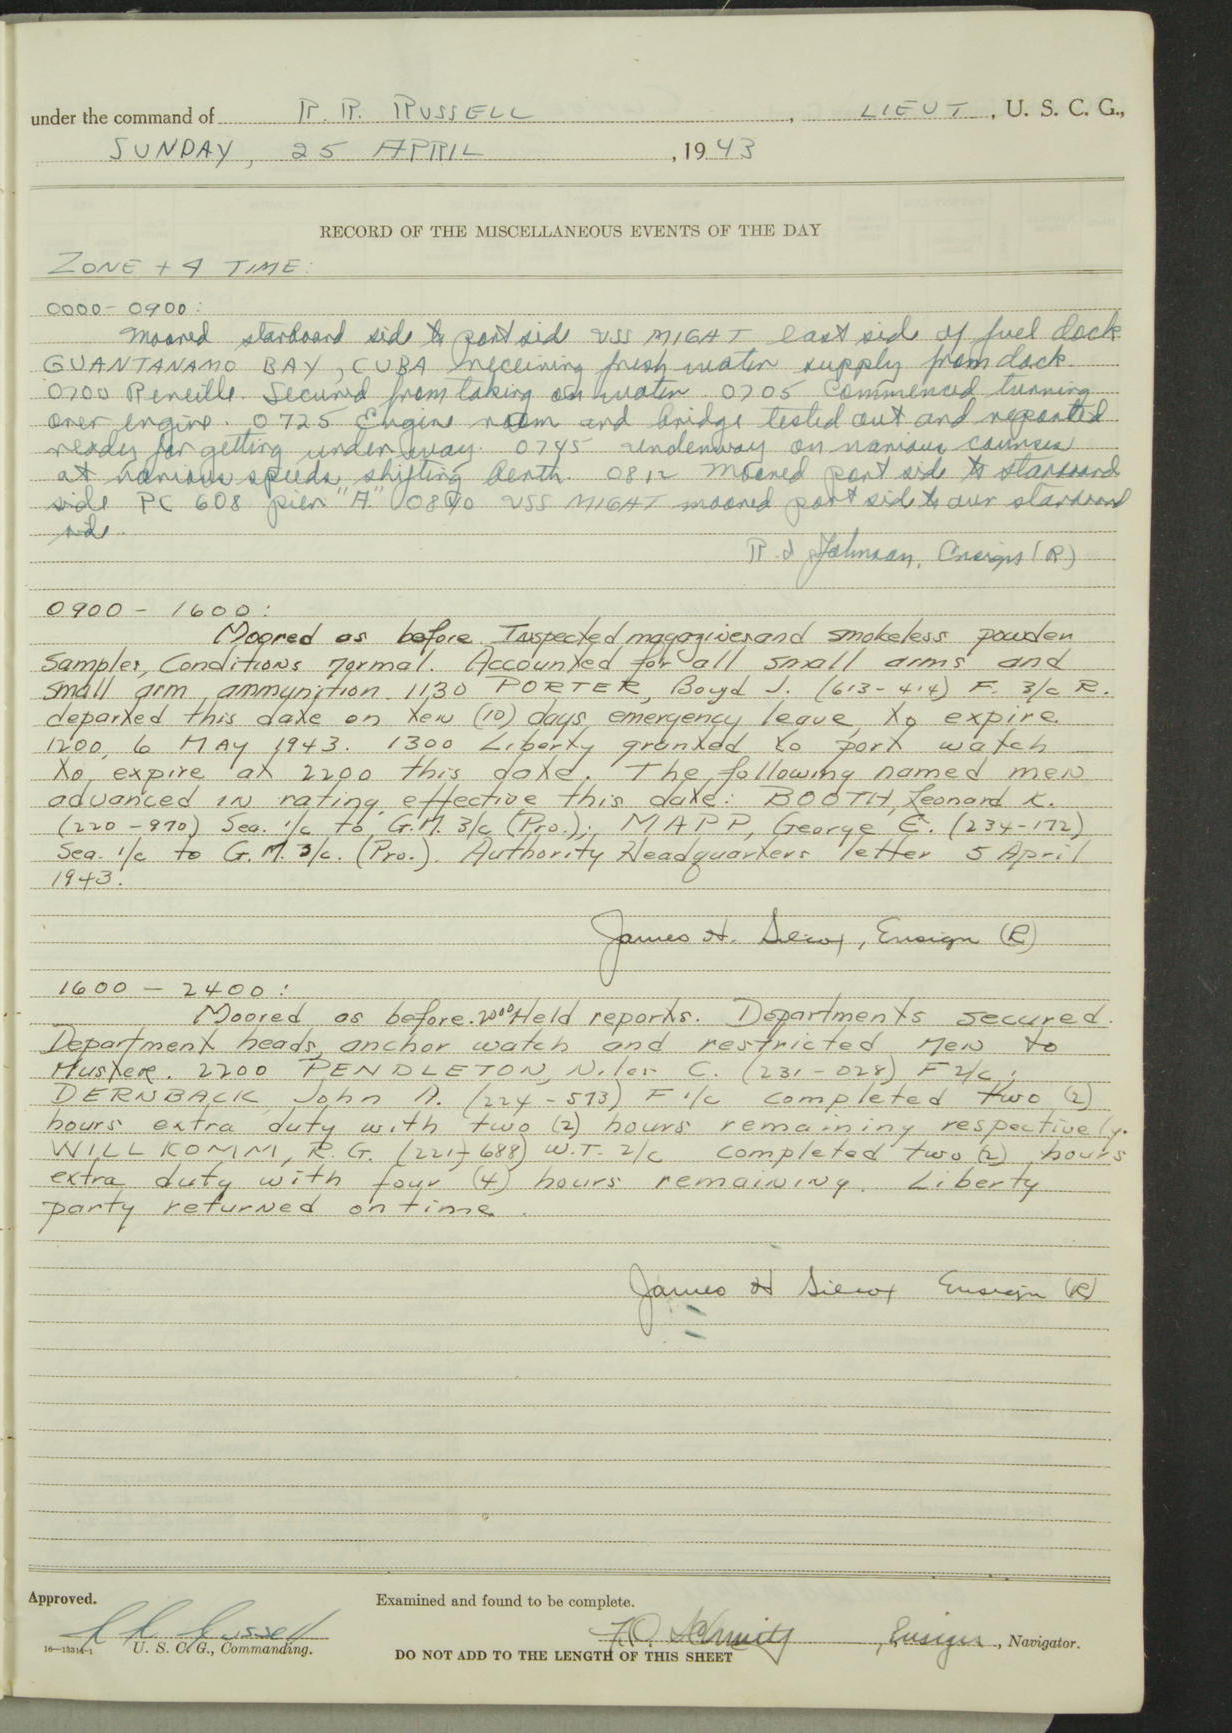 under the command of R. R. RUSSELL, LIEUT, U. S. C. G.,
SUNDAY, 25 APRIL, 1943
RECORD OF THE MISCELLANEOUS EVENTS OF THE DAY
ZONE + 4 TIME:
0000-0900:
Moored starboard side to port side USS MIGHT east side of fuel dock
GUANTANAMO BAY, CUBA receiving fresh water supply from dock.
0700 Reveille. Secured from taking on water. 0705 Commenced turning
over engine. 0725 Engine room and bridge tested out and reported
ready for getting underway. 0745 underway on various courses
at various speeds, shifting berth. 0812 Moored port side to starboard
side PC 608 pier "A" 0840 USS MIGHT moored port side to our starboard
side.
R. J. Johnson, Ensign (R)
0900 - 1600:
Moored as before. Inspected magazines and smokeless powder
Samples, Conditions normal. Accounted for all small arms and
small arm ammunition. 1130 PORTER, Boyd J. (613-414) F. 3/c R.
departed this date on ten (10) days emergency leave, to expire
1200, 6 MAY 1943. 1300 Liberty granted to port watch
to expire at 2200 this date. The following named men
advanced in rating effective this date: BOOTH, Leonard K.
(220-970) Sea. 1/c to G.M. 3/c (Pro.); MAPP, George E. (234-172)
Sea. 1/c to G.M. 3/c. (Pro.). Authority Headquarters letter 5 April
1943.
James H. Silcox, Ensign (R)
1600 - 2400:
Moored as before. 2000 Held reports. Departments secured.
Department heads, anchor watch and restricted men to
Muster. 2200 PENDLETON, Niles C. (231-028) F 2/c;
DERNBACK John A. (224-573) F 1/c completed two (2)
hours extra duty with two (2) hours remaining respectively.
WILLKOMM, R. G. (221-688) W.T. 2/c completed two (2) hours
extra duty with four (4) hours remaining. Liberty
party returned on time.
James H Silcox Ensign (R)
Approved. Examined and found to be complete.
R. R. Russell F.O. Schmitz, Ensign, Navigator.
16—13314-1 U. S. C. G., Commanding.
DO NOT ADD TO THE LENGTH OF THIS SHEET